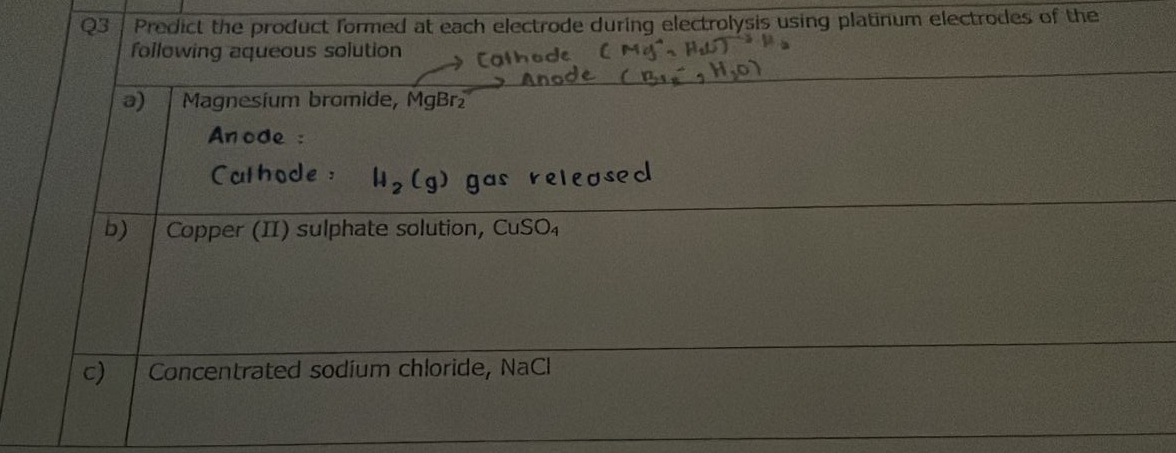 Q3 Predict the product formed at each electrode during electrolysis using platinum electrodes of the
following aqueous solution
→ Cathode (Mg
→ Anode ( , H₂O)
a) Magnesium bromide, MgBr₂
Anode :
Cathode : H₂(g) gas released
b) Copper (II) sulphate solution, CuSO₄
c) Concentrated sodium chloride, NaCl